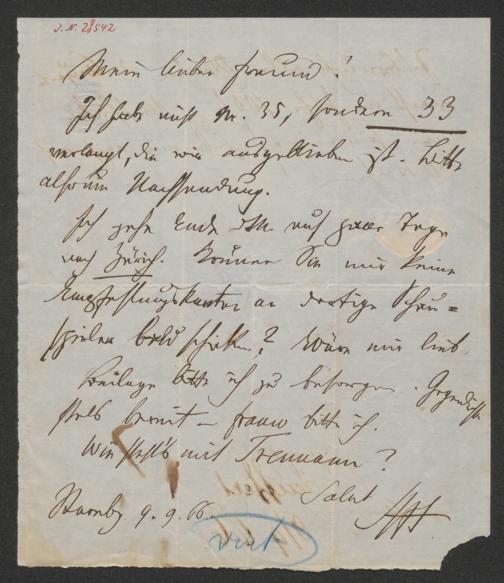 J. N. 28542
Mein lieber Freund!
Ich habe nicht Nr. 35, sondern 33
verlangt, die mir ausgeblieben ist. Bitte
also um Nachsendung.
Ich gehe Ende d. M. auf paar Tage
nach Zürich. Können Sie mir keine
Empfehlungskarten an dortige Schau-
spieler bald schicken? Wäre mir lieb.
Beilage bitte ich zu besorgen. Gegendienste
stets bereit – franco bitte ich.
Wie steht's mit Tremann?
Salut
9. 9. 66.